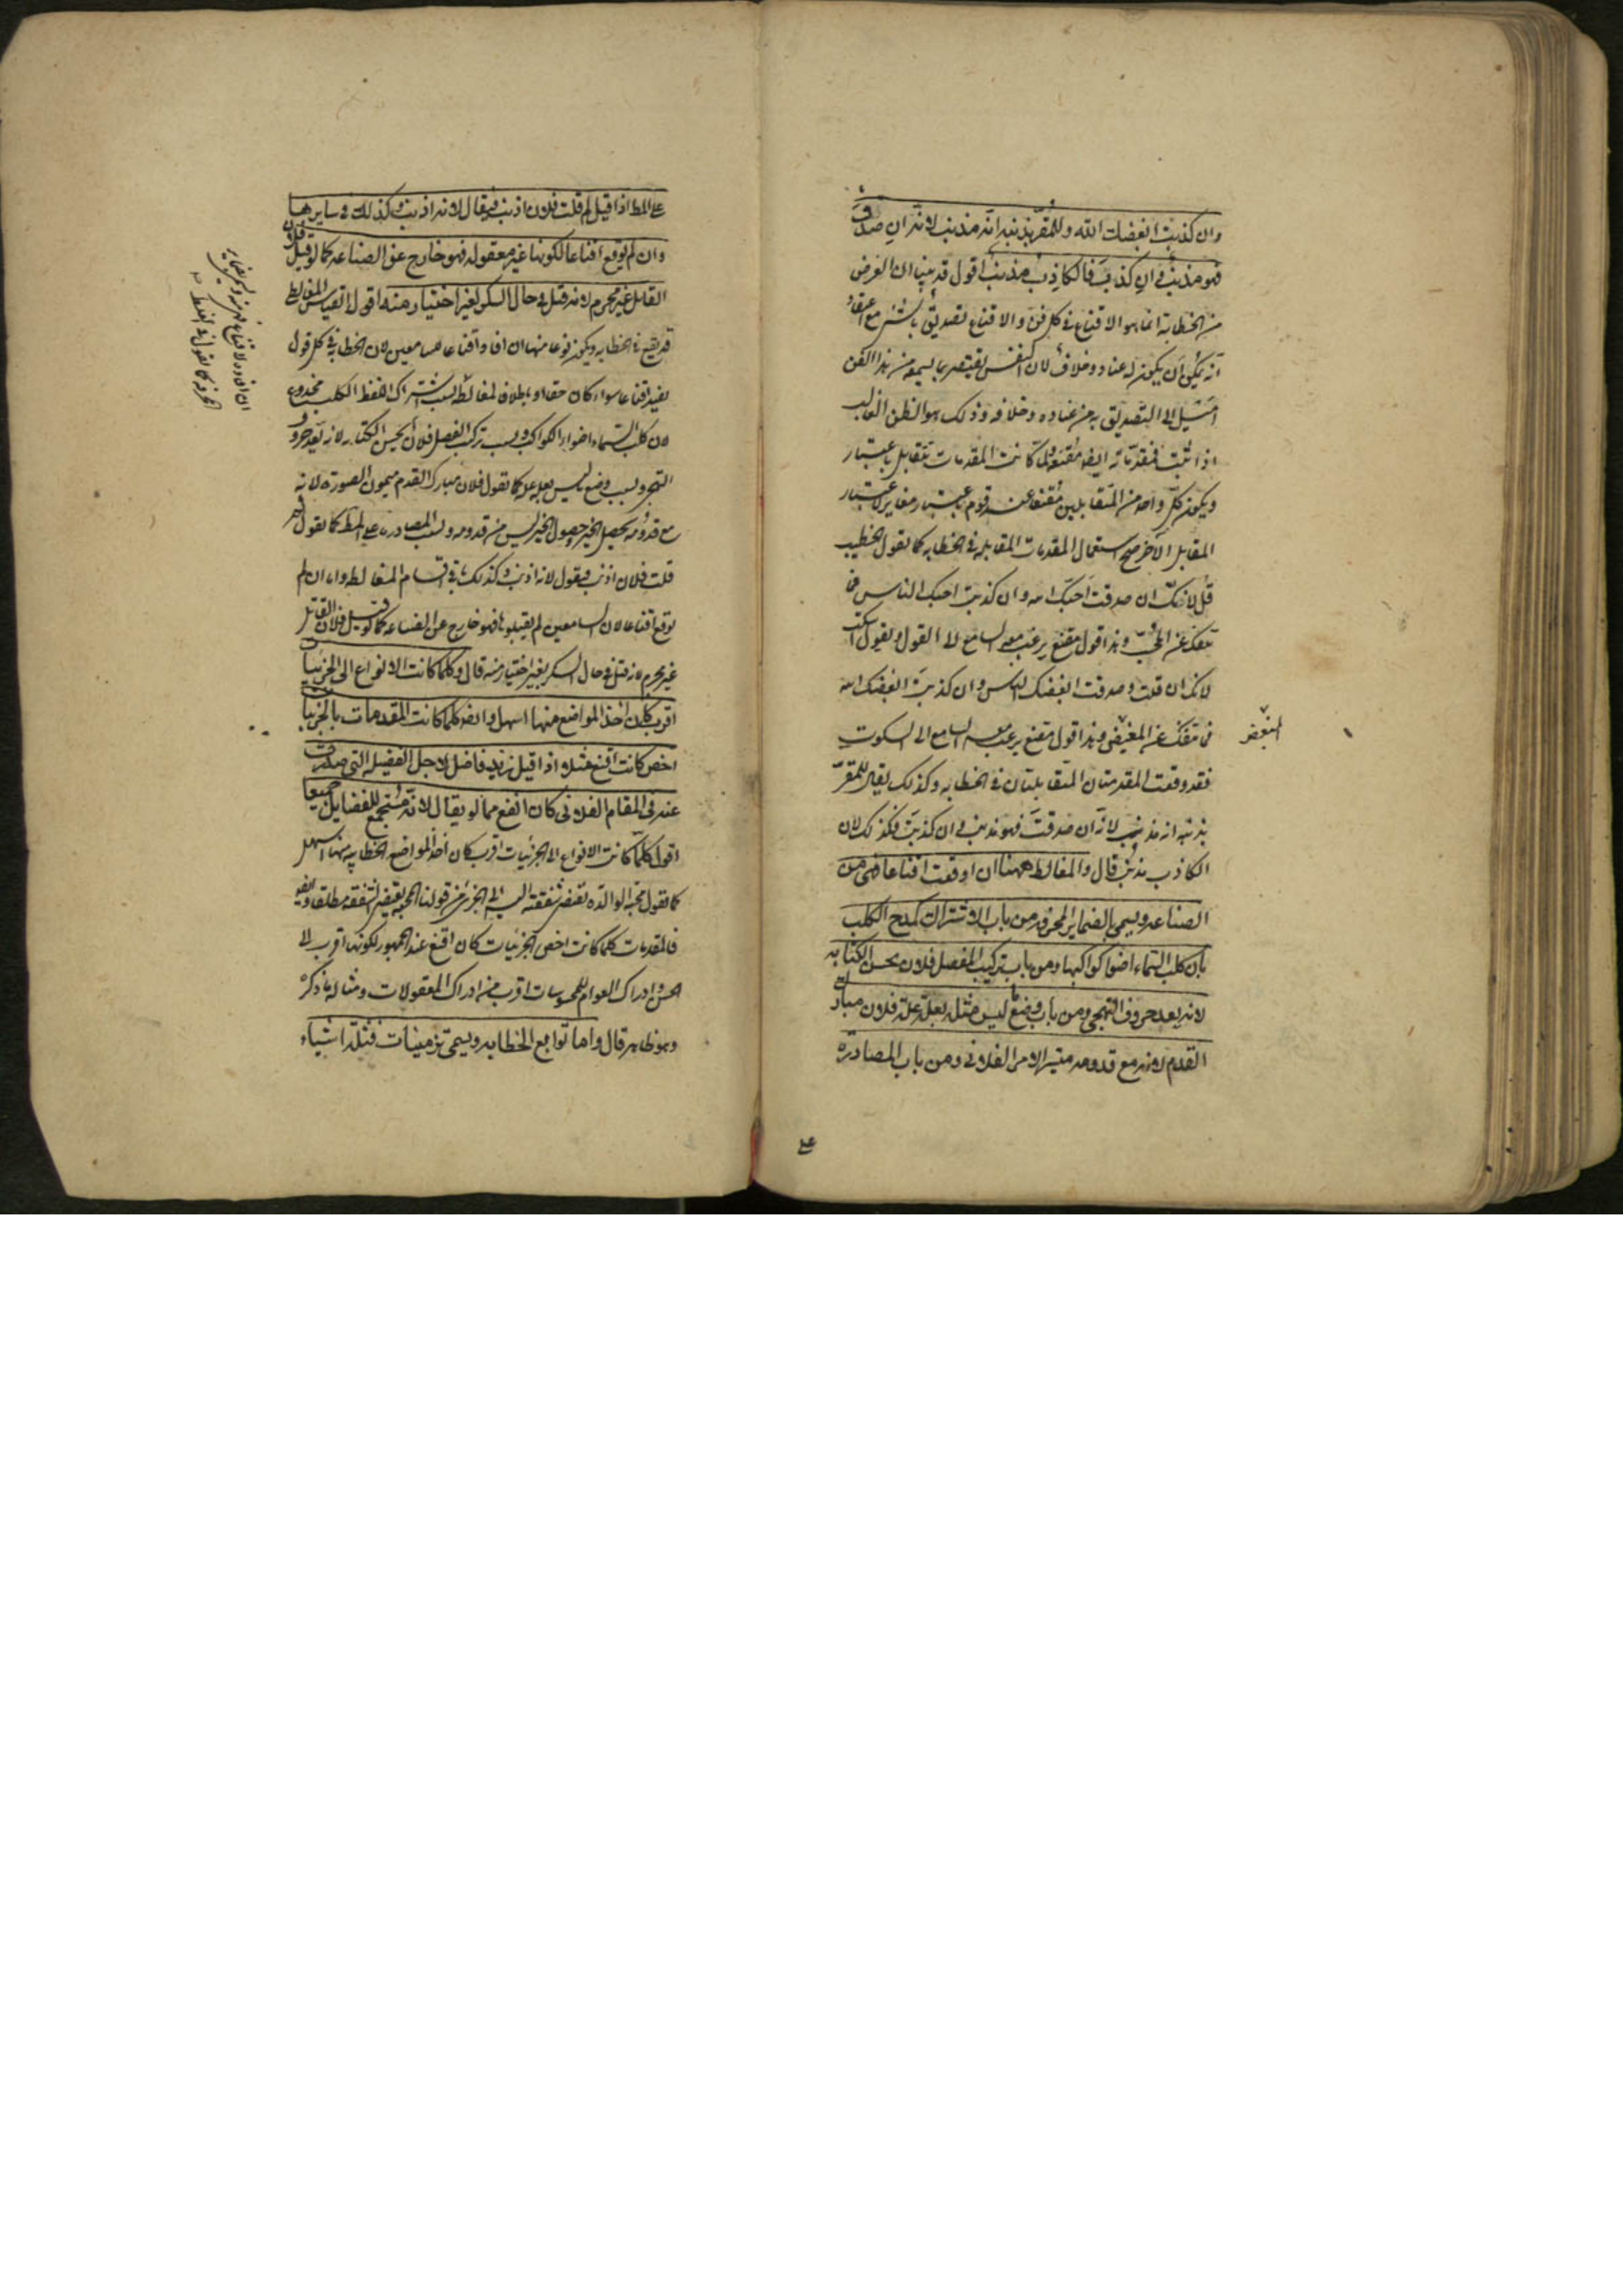 وان كذبت ابغضك الله وللمقر بذنبه انه مذنب لانه ان صدق
فهو مذنب وان كذب فالكاذب مذنب اقول قد بينا ان الغرض
من الخطابة انما هو الاقناع في كل فن والاقناع تصديق بالشيء مع اعتقاد
انه يمكن ان يكون له عناد وخلاف لان النفس
اميل الى التصديق به من عناده وخلافه وذلك هو الظن الغالب
اذا ثبت فمقدماته ايضا مقنعة ولما كانت المقدمات تتقابل باعتبار
ويكون كل واحد من المتقابلين مقنعا عند قوم باعتبار مغاير لاعتبار
المقابل الآخر صح استعمال المقدمات المتقابلة في الخطابة كما تقول الخطيب
قل لانك ان صدقت احبك الله وان كذبت احبك الناس فما
تنفك عن المحب وهذا قول مقنع يرغب معه السامع الى القول ويقول اسكت
لانك ان قلت وصدقت ابغضك الناس وان كذبت ابغضك الله
فما تنفك عن المبغض وهذا قول مقنع يرغب معه السامع الى السكوت
فقد وقعت المقدمتان المتقابلتان في الخطابة وكذلك يقال للمقر
بذنبه انه مذنب لانه ان صدقت فهو مذنب وان كذبت فكذلك لان
الكاذب مذنب قال والمغالط ههنا ان اوقعت اقناعا فهي من
الصناعة ويسمى بالضماير المحرفة من باب الاشتراك كمدح الكلب
بان كلب السماء اضوأ كواكبها ومن باب تركيب المفصل فلان يحسن الكتابة
لانه يعد حروف التهجي ومن باب وضع ما ليس مثله بعلة علة فلان مبارك
القدم لانه مع قدومه متيسر الامر الفلاني ومن باب المصادرة
على
على المط اذا قيل لم قلت فلان اذنب فيقال لانه اذنب وكذلك في سايرها
وان لم توقع اقناعا لكونها غير معقولة فهو خارج عن الصناعة كما لو قيل فلان
القاتل غير مجرم لانه قتل في حال السكر لغير اختيار منه اقول القياس المغالطي
قد يقع في الخطابة ويكون نوعا منها ان افاد اقناعا للسامعين لان الخطابة في كل قول
يفيد اقناعا سواء كان حقا او باطلا فالمغالطة بسبب اشتراك اللفظ الكلب ممدوح
لان كلب السماء اضواء الكواكب وبسبب تركيب المفصل فلان يحسن الكتابة لانه يعد حروف
التهجي وبسبب وضع ما ليس بعلة علة كما تقول فلان مبارك القدم ميمون الصورة لانه
مع قدومه يحصل الخير وحصول الخير ليس من قدومه وبسبب المصادرة على المط كما تقول لم
قلت فلان اذنب فيقول لانه اذنب وكذلك باقي اقسام المغالطة واما ان لم
توقع اقناعا لان السامعين لم يقبلوها فهو خارج عن الصناعة كما لو قيل فلان القاتل
غير مجرم لانه قتل في حال السكر بغير اختيار منه قال وكلما كانت الانواع الى الجزئيات
اقرب كان اخذ المواضع منها اسهل وايضا كلما كانت المقدمات بالجزئيات
اخص كانت اقنع مثلا اذا قيل زيد فاضل لاجل الفضيلة التي صدرت
عنه في المقام الفلاني كان انفع مما لو يقال لانه مستجمع للفضايل جميعا
اقول كلما كانت الانواع الى الجزئيات اقرب كان اخذ المواضع الخطابية منها اسهل
كما تقول محبة الوالدة تقتضي شفقته
فالمقدمات كلما كانت اخص بالجزئيات كان اقنع عند الجمهور لكونها اقرب الى
الحس وادراك العوام للمحسوسات اقرب من ادراك المعقولات ومثاله ما ذكره
وهو ظاهر قال واما توابع الخطابة ويسمى تزيينات فثلثة اشياء